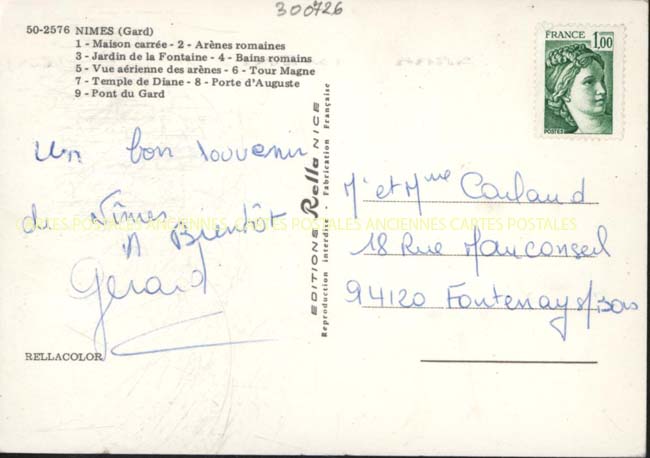 300726
50-2576 NIMES (Gard)
1 - Maison carrée - 2 - Arènes romaines
3 - Jardin de la Fontaine - 4 - Bains romains
5 - Vue aérienne des arènes - 6 - Tour Magne
7 - Temple de Diane - 8 - Porte d'Auguste
9 - Pont du Gard
Un bon souvenir
de Nîmes
A Bientôt
Gerard
RELLACOLOR
EDITIONS Rella NICE
Reproduction interdite - Fabrication Française
FRANCE 1,00
POSTES
Mr et Mme Carlaud
18 Rue Mauconseil
94120 Fontenay s/Bois
CARTES POSTALES ANCIENNES CARTES POSTALES ANCIENNES CARTES POSTALES